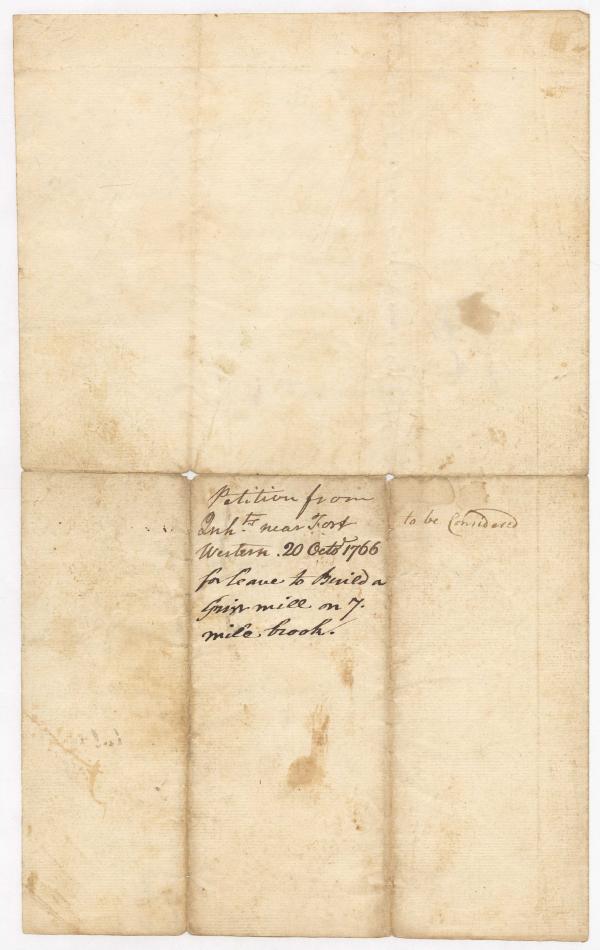 Petition from
Inhts near Fort
Western 20 Octr 1766
for leave to Build a
Grist mill on 7.
mile brook.
to be Considered